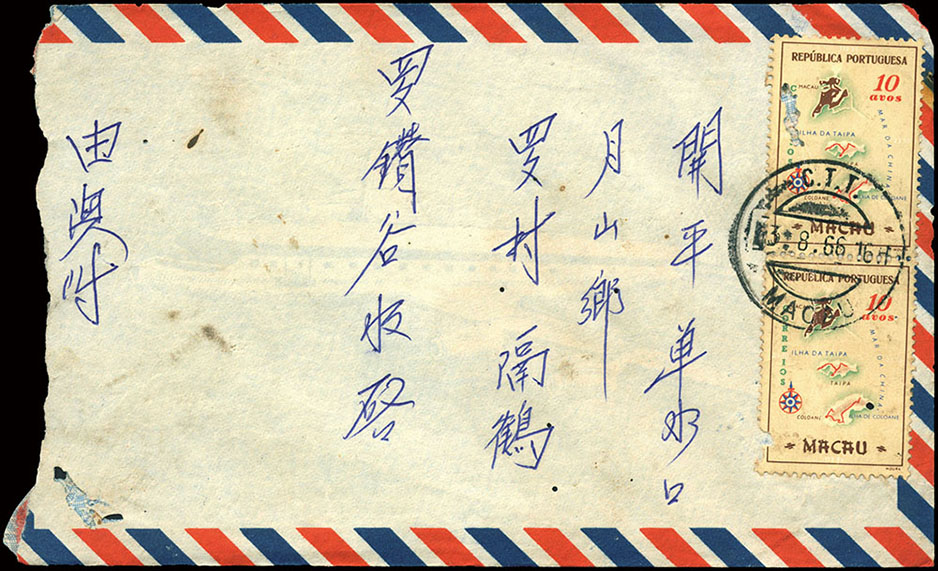 開平单水口
月山鄉
罗村 隔鶴
罗鑽谷收啓
由澳付
REPÚBLICA PORTUGUESA
10
avos
MACAU
CORREIOS
ILHA DA TAIPA
MAR DA CHINA
COLOANE
ILHA DE COLOANE
MACAU
C.T.T.
3.8.66 16
MACAU
REPÚBLICA PORTUGUESA
10
avos
MACAU
CORREIOS
ILHA DA TAIPA
TAIPA
MAR DA CHINA
COLOANE
ILHA DE COLOANE
MACAU